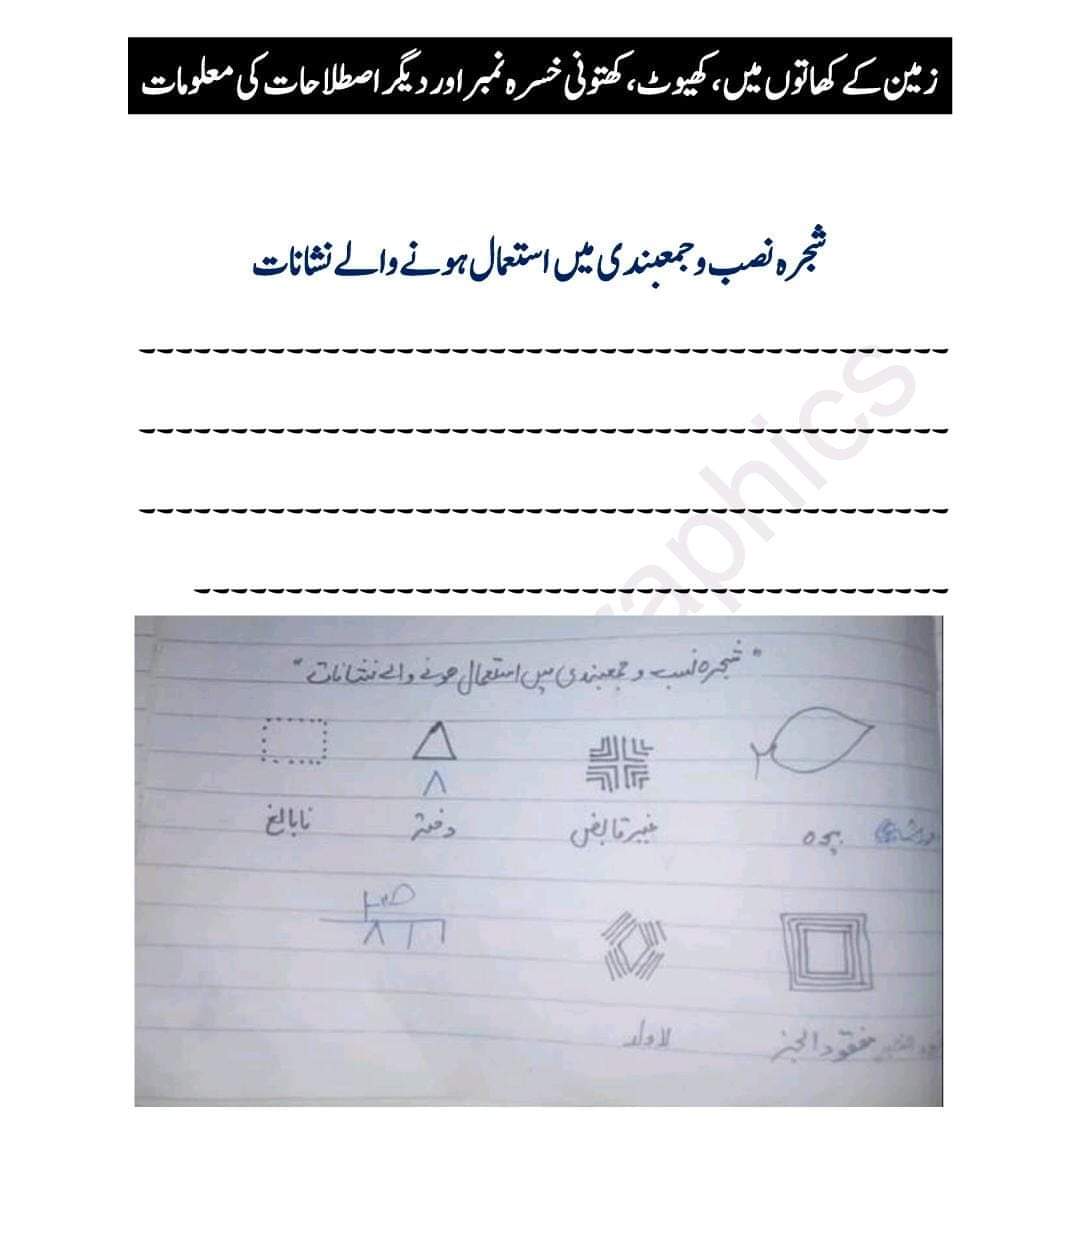 زمین کے کھاتوں میں، کھیوٹ، کھتونی خسرہ نمبر اور دیگر اصطلاحات کی معلومات
شجرہ نصب و جمعبندی میں استعمال ہونے والے نشانات
raphics
"شجرہ نسب و جمعبندی میں استعمال ہونے والے نشانات"
غیر قابض دختر نابالغ
مفقود الخبر لاولد